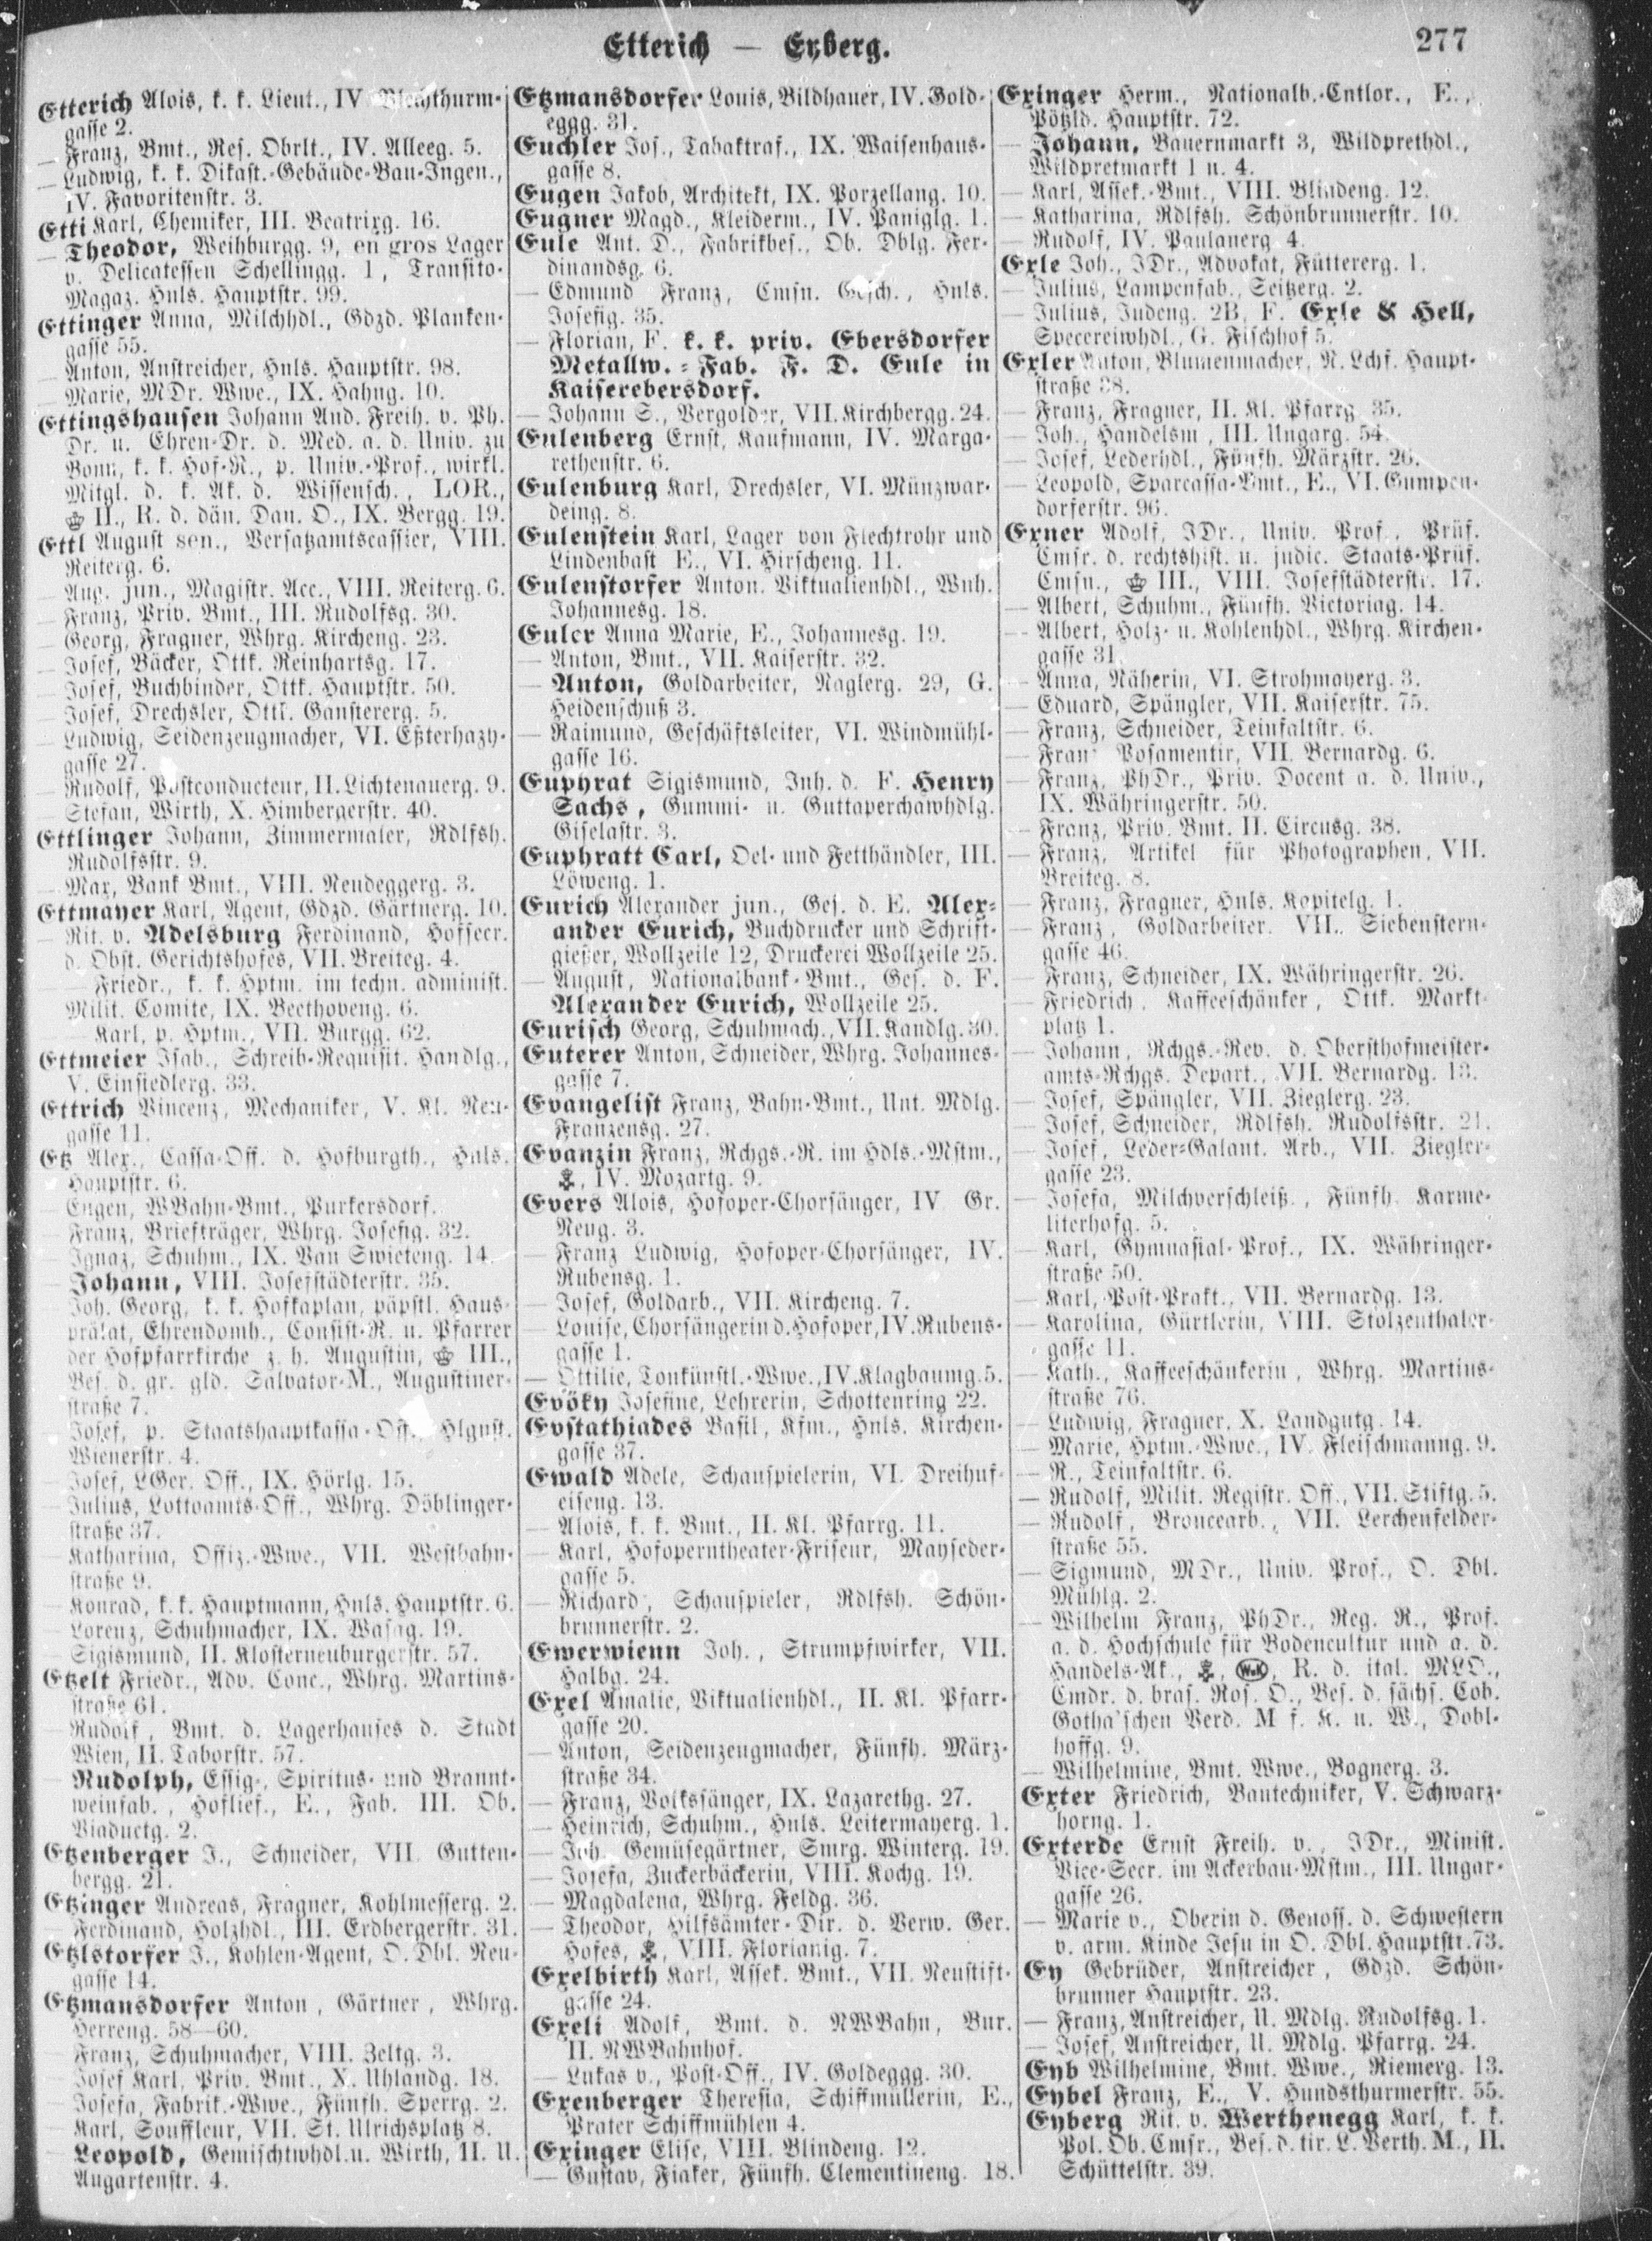 Etterich — Eyberg.
277
Etterich Alois, k. k. Lieut., IV Blechthurm-
gasse 2.
— Franz, Bmt., Res. Obrlt., IV. Alleeg. 5.
— Ludwig, k. k. Dikast.-Gebäude-Bau-Ingen.,
IV. Favoritenstr. 3.
Etti Karl, Chemiker, III. Beatrixg. 16.
— Theodor, Weihburgg. 9, en gros Lager
v. Delicatessen Schellingg. 1, Transito-
Magaz. Hnls. Hauptstr. 99.
Ettinger Anna, Milchhdl., Gdzd. Planken-
gasse 55.
— Anton, Anstreicher, Hnls. Hauptstr. 98.
— Marie, MDr. Wwe., IX. Hahng. 10.
Ettingshausen Johann And. Freih. v. Ph.
Dr. u. Ehren-Dr. d. Med. a. d. Univ. zu
Bonn, k. k. Hof-R., p. Univ.-Prof., wirkl.
Mitgl. d. k. Ak. d. Wissensch., LOR.,
II., R. d. dän. Dan. O., IX. Bergg. 19.
Ettl August sen., Versatzamtscassier, VIII.
Reiterg. 6.
— Aug. jun., Magistr. Acc., VIII. Reiterg. 6.
— Franz, Priv. Bmt., III. Rudolfsg. 30.
— Georg, Fragner, Whrg. Kircheng. 23.
— Josef, Bäcker, Ottk. Reinhartsg. 17.
— Josef, Buchbinder, Ottk. Hauptstr. 50.
— Josef, Drechsler, Ottk. Ganstererg. 5.
— Ludwig, Seidenzeugmacher, VI. Eßterhazy-
gasse 27.
— Rudolf, Postconducteur, II. Lichtenauerg. 9.
— Stefan, Wirth, X. Himbergerstr. 40.
Ettlinger Johann, Zimmermaler, Rdlfsh.
Rudolfsstr. 9.
— Max, Bank Bmt., VIII. Neudeggerg. 3.
Ettmayer Karl, Agent, Gdzd. Gärtnerg. 10.
— Rit. v. Adelsburg Ferdinand, Hofsecr.
d. Obst. Gerichtshofes, VII. Breiteg. 4.
— Friedr., k. k. Hptm. im techn. administ.
Milit. Comite, IX. Beethoveng. 6.
— Karl, p. Hptm., VII. Burgg. 62.
Ettmeier Isab., Schreib-Requisit. Handlg.,
V. Einsiedlerg. 33.
Ettrich Vincenz, Mechaniker, V. Kl. Neu-
gasse 11.
Etz Alex., Cassa-Off. d. Hofburgth., Hnls.
Hauptstr. 6.
— Eugen, WBahn-Bmt., Purkersdorf.
— Franz, Briefträger, Whrg. Josefig. 32.
— Ignaz, Schuhm., IX. Van Swieteng. 14.
— Johann, VIII. Josefstädterstr. 35.
— Joh. Georg, k. k. Hofkaplan, päpstl. Haus-
prälat, Ehrendomh., Consist-R. u. Pfarrer
der Hofpfarrkirche z. h. Augustin, III.,
Bes. d. gr. gld. Salvator-M., Augustiner-
straße 7.
— Josef, p. Staatshauptkassa-Off., Hlgnst.
Wienerstr. 4.
— Josef, LGer. Off., IX. Hörlg. 15.
— Julius, Lottoamts-Off., Whrg. Döblinger-
straße 37.
— Katharina, Offiz.-Wwe., VII. Westbahn-
straße 9.
— Konrad, k. k. Hauptmann, Hnls. Hauptstr. 6.
— Lorenz, Schuhmacher, IX. Wasag. 19.
— Sigismund, II. Klosterneuburgerstr. 57.
Etzelt Friedr., Adv. Conc., Whrg. Martins-
straße 61.
— Rudolf, Bmt. d. Lagerhauses d. Stadt
Wien, II. Taborstr. 57.
— Rudolph, Essig-, Spiritus- und Brannt-
weinfab., Hoflief., E., Fab. III. Ob.
Viaductg. 2.
Etzenberger J., Schneider, VII. Gutten-
bergg. 21.
Etzinger Andreas, Fragner, Kohlmesserg. 2.
— Ferdinand, Holzhdl., III. Erdbergerstr. 31.
Etzlstorfer J., Kohlen-Agent, O. Dbl. Neu-
gasse 14.
Etzmansdorfer Anton, Gärtner, Whrg.
Herreng. 58—60.
— Franz, Schuhmacher, VIII. Zeltg. 3.
— Josef Karl, Priv. Bmt., X. Uhlandg. 18.
— Josefa, Fabrik.-Wwe., Fünfh. Sperrg. 2.
— Karl, Souffleur, VII. St. Ulrichsplatz 8.
— Leopold, Gemischtwhdl. u. Wirth, II. U.
Augartenstr. 4.
Etzmansdorfer Louis, Bildhauer, IV. Gold-
eggg. 31.
Euchler Jos., Tabaktraf., IX. Waisenhaus-
gasse 8.
Eugen Jakob, Architekt, IX. Porzellang. 10.
Eugner Magd., Kleiderm., IV. Paniglg. 1.
Eule Ant. D., Fabrikbes., Ob. Dblg. Fer-
dinandsg. 6.
— Edmund Franz, Cmsn. Gesch., Hnls.
Josefig. 35.
— Florian, F. k. k. priv. Ebersdorfer
Metallw.-Fab. F. D. Eule in
Kaiserebersdorf.
— Johann S., Vergolder, VII. Kirchbergg. 24.
Eulenberg Ernst, Kaufmann, IV. Marga-
rethenstr. 6.
Eulenburg Karl, Drechsler, VI. Münzwar-
deing. 8.
Eulenstein Karl, Lager von Flechtrohr und
Lindenbast E., VI. Hirscheng. 11.
Eulenstorfer Anton. Viktualienhdl., Wnh.
Johannesg. 18.
Euler Anna Marie, E., Johannesg. 19.
— Anton, Bmt., VII. Kaiserstr. 32.
— Anton, Goldarbeiter, Naglerg. 29, G.
Heidenschuß 3.
— Raimund, Geschäftsleiter, VI. Windmühl-
gasse 16.
Euphrat Sigismund, Inh. d. F. Henry
Sachs, Gummi- u. Guttaperchawhdlg.
Giselastr. 3.
Euphratt Carl, Oel- und Fetthändler, III.
Löweng. 1.
Eurich Alexander jun., Ges. d. E. Alex-
ander Eurich, Buchdrucker und Schrift-
gießer, Wollzeile 12, Druckerei Wollzeile 25.
— August, Nationalbank-Bmt., Ges. d. F.
Alexander Eurich, Wollzeile 25.
Eurisch Georg, Schuhmach., VII. Kandlg. 30.
Euterer Anton, Schneider, Whrg. Johannes-
gasse 7.
Evangelist Franz, Bahn-Bmt., Unt. Mdlg.
Franzensg. 27.
Evanzin Franz, Rchgs.-R. im Hdls.-Mstm.,
, IV. Mozartg. 9.
Evers Alois, Hofoper-Chorsänger, IV. Gr.
Neug. 3.
— Franz Ludwig, Hofoper-Chorsänger, IV.
Rubensg. 1.
— Josef, Goldarb., VII. Kircheng. 7.
— Louise, Chorsängerin d. Hofoper, IV. Rubens-
gasse 1.
— Ottilie, Tonkünstl.-Wwe., IV. Klagbaumg. 5.
Evöky Josefine, Lehrerin, Schottenring 22.
Evstathiades Basil, Kfm., Hnls. Kirchen-
gasse 37.
Ewald Adele, Schauspielerin, VI. Dreihuf-
eiseng. 13.
— Alois, k. k. Bmt., II. Kl. Pfarrg. 11.
— Karl, Hofoperntheater-Friseur, Mayseder-
gasse 5.
— Richard, Schauspieler, Rdlfsh. Schön-
brunnerstr. 2.
Ewerwienn Joh., Strumpfwirker, VII.
Halbg. 24.
Exel Amalie, Viktualienhdl., II. Kl. Pfarr-
gasse 20.
— Anton, Seidenzeugmacher, Fünfh. März-
straße 34.
— Franz, Volkssänger, IX. Lazarethg. 27.
— Heinrich, Schuhm., Hnls. Leitermayerg. 1.
— Joh. Gemüsegärtner, Smrg. Winterg. 19.
— Josefa, Zuckerbäckerin, VIII. Kochg. 19.
— Magdalena, Whrg. Feldg. 36.
— Theodor, Hilfsämter-Dir. d. Verw. Ger.
Hofes, , VIII. Florianig. 7.
Exelbirth Karl, Assek. Bmt., VII. Neustift-
gasse 24.
Exeli Adolf, Bmt. d. NWBahn, Bur.
II. NWBahnhof.
— Lukas v., Post-Off., IV. Goldeggg. 30.
Exenberger Theresia, Schiffmüllerin, E.,
Prater Schiffmühlen 4.
Exinger Elise, VIII. Blindeng. 12.
— Gustav, Fiaker, Fünfh. Clementineng. 18.
Exinger Herm., Nationalb.-Cntlor., E.,
Pötzld. Hauptstr. 72.
— Johann, Bauernmarkt 3, Wildprethdl.,
Wildpretmarkt 1 u. 4.
— Karl, Assek.-Bmt., VIII. Blindeng. 12.
— Katharina, Rdlfsh. Schönbrunnerstr. 10.
— Rudolf, IV. Paulanerg 4.
Exle Joh., JDr., Advokat, Füttererg. 1.
— Julius, Lampenfab., Seitzerg. 2.
— Julius, Judeng. 2B, F. Exle & Hell,
Specereiwhdl., G. Fischhof 5.
Exler Anton, Blumenmacher, N. Lchf. Haupt-
straße 38.
— Franz, Fragner, II. Kl. Pfarrg. 35.
— Joh., Handelsm., III. Ungarg. 54.
— Josef, Lederhdl., Fünfh. Märzstr. 26.
— Leopold, Sparcassa-Bmt., E., VI. Gumpen-
dorferstr. 96.
Exner Adolf, JDr., Univ. Prof., Prüf.
Cmsr. d. rechtshist. u. judic. Staats-Prüf.
Cmsn., III., VIII. Josefstädterstr. 17.
— Albert, Schuhm., Fünfh. Victoriag. 14.
— Albert, Holz- u. Kohlenhdl., Whrg. Kirchen-
gasse 31.
— Anna, Näherin, VI. Strohmayerg. 3.
— Eduard, Spängler, VII. Kaiserstr. 75.
— Franz, Schneider, Teinfaltstr. 6.
— Franz Posamentir, VII. Bernardg. 6.
— Franz, PhDr., Priv. Docent a. d. Univ.,
IX. Währingerstr. 50.
— Franz, Priv. Bmt. II. Circusg. 38.
— Franz, Artikel für Photographen, VII.
Breiteg. 8.
— Franz, Fragner, Hnls. Kopitelg. 1.
— Franz, Goldarbeiter. VII. Siebenstern-
gasse 46.
— Franz, Schneider, IX. Währingerstr. 26.
— Friedrich, Kaffeeschänker, Ottk. Markt-
platz 1.
— Johann, Rchgs.-Rev. d. Obersthofmeister-
amts-Rchgs. Depart., VII. Bernardg. 13.
— Josef, Spängler, VII. Zieglerg. 23.
— Josef, Schneider, Rdlfsh. Rudolfsstr. 21.
— Josef, Leder-Galant. Arb., VII. Ziegler-
gasse 23.
— Josefa, Milchverschleiß., Fünfh. Karme-
literhofg. 5.
— Karl, Gymnasial-Prof., IX. Währinger-
straße 50.
— Karl, Post-Prakt., VII. Bernardg. 13.
— Karolina, Gürtlerin, VIII. Stolzenthaler-
gasse 11.
— Kath., Kaffeeschänkerin, Whrg. Martins-
straße 76.
— Ludwig, Fragner, X. Landgutg. 14.
— Marie, Hptm.-Wwe., IV. Fleischmanng. 9.
— R., Teinfaltstr. 6.
— Rudolf, Milit. Registr. Off., VII. Stiftg. 5.
— Rudolf, Broncearb., VII. Lerchenfelder-
straße 55.
— Sigmund, MDr., Univ. Prof., O. Dbl.
Mühlg. 2.
— Wilhelm Franz, PhDr., Reg. R., Prof.
a. d. Hochschule für Bodencultur und a. d.
Handels-Ak., , W.K, R. d. ital. MLO.,
Cmdr. d. bras. Ros. O., Bes. d. sächs. Cob.
Gotha'schen Verd. M f. K. u. W., Dobl-
hoffg. 9.
— Wilhelmine, Bmt. Wwe., Bognerg. 3.
Exter Friedrich, Bautechniker, V. Schwarz-
horng. 1.
Exterde Ernst Freih. v., JDr., Minist.
Vice-Secr. im Ackerbau-Mstm., III. Ungar-
gasse 26.
— Marie v., Oberin d. Genoss. d. Schwestern
v. arm. Kinde Jesu in O. Dbl. Hauptstr. 73.
Ey Gebrüder, Anstreicher, Gdzd. Schön-
brunner Hauptstr. 23.
— Franz, Anstreicher, U. Mdlg. Rudolfsg. 1.
— Josef, Anstreicher, U. Mdlg. Pfarrg. 24.
Eyb Wilhelmine, Bmt. Wwe., Riemerg. 13.
Eybel Franz, E., V. Hundsthurmerstr. 55.
Eyberg Rit. v. Werthenegg Karl, k. k.
Pol. Ob. Cmsr., Bes. d. tir. L. Verth. M., II.
Schüttelstr. 39.